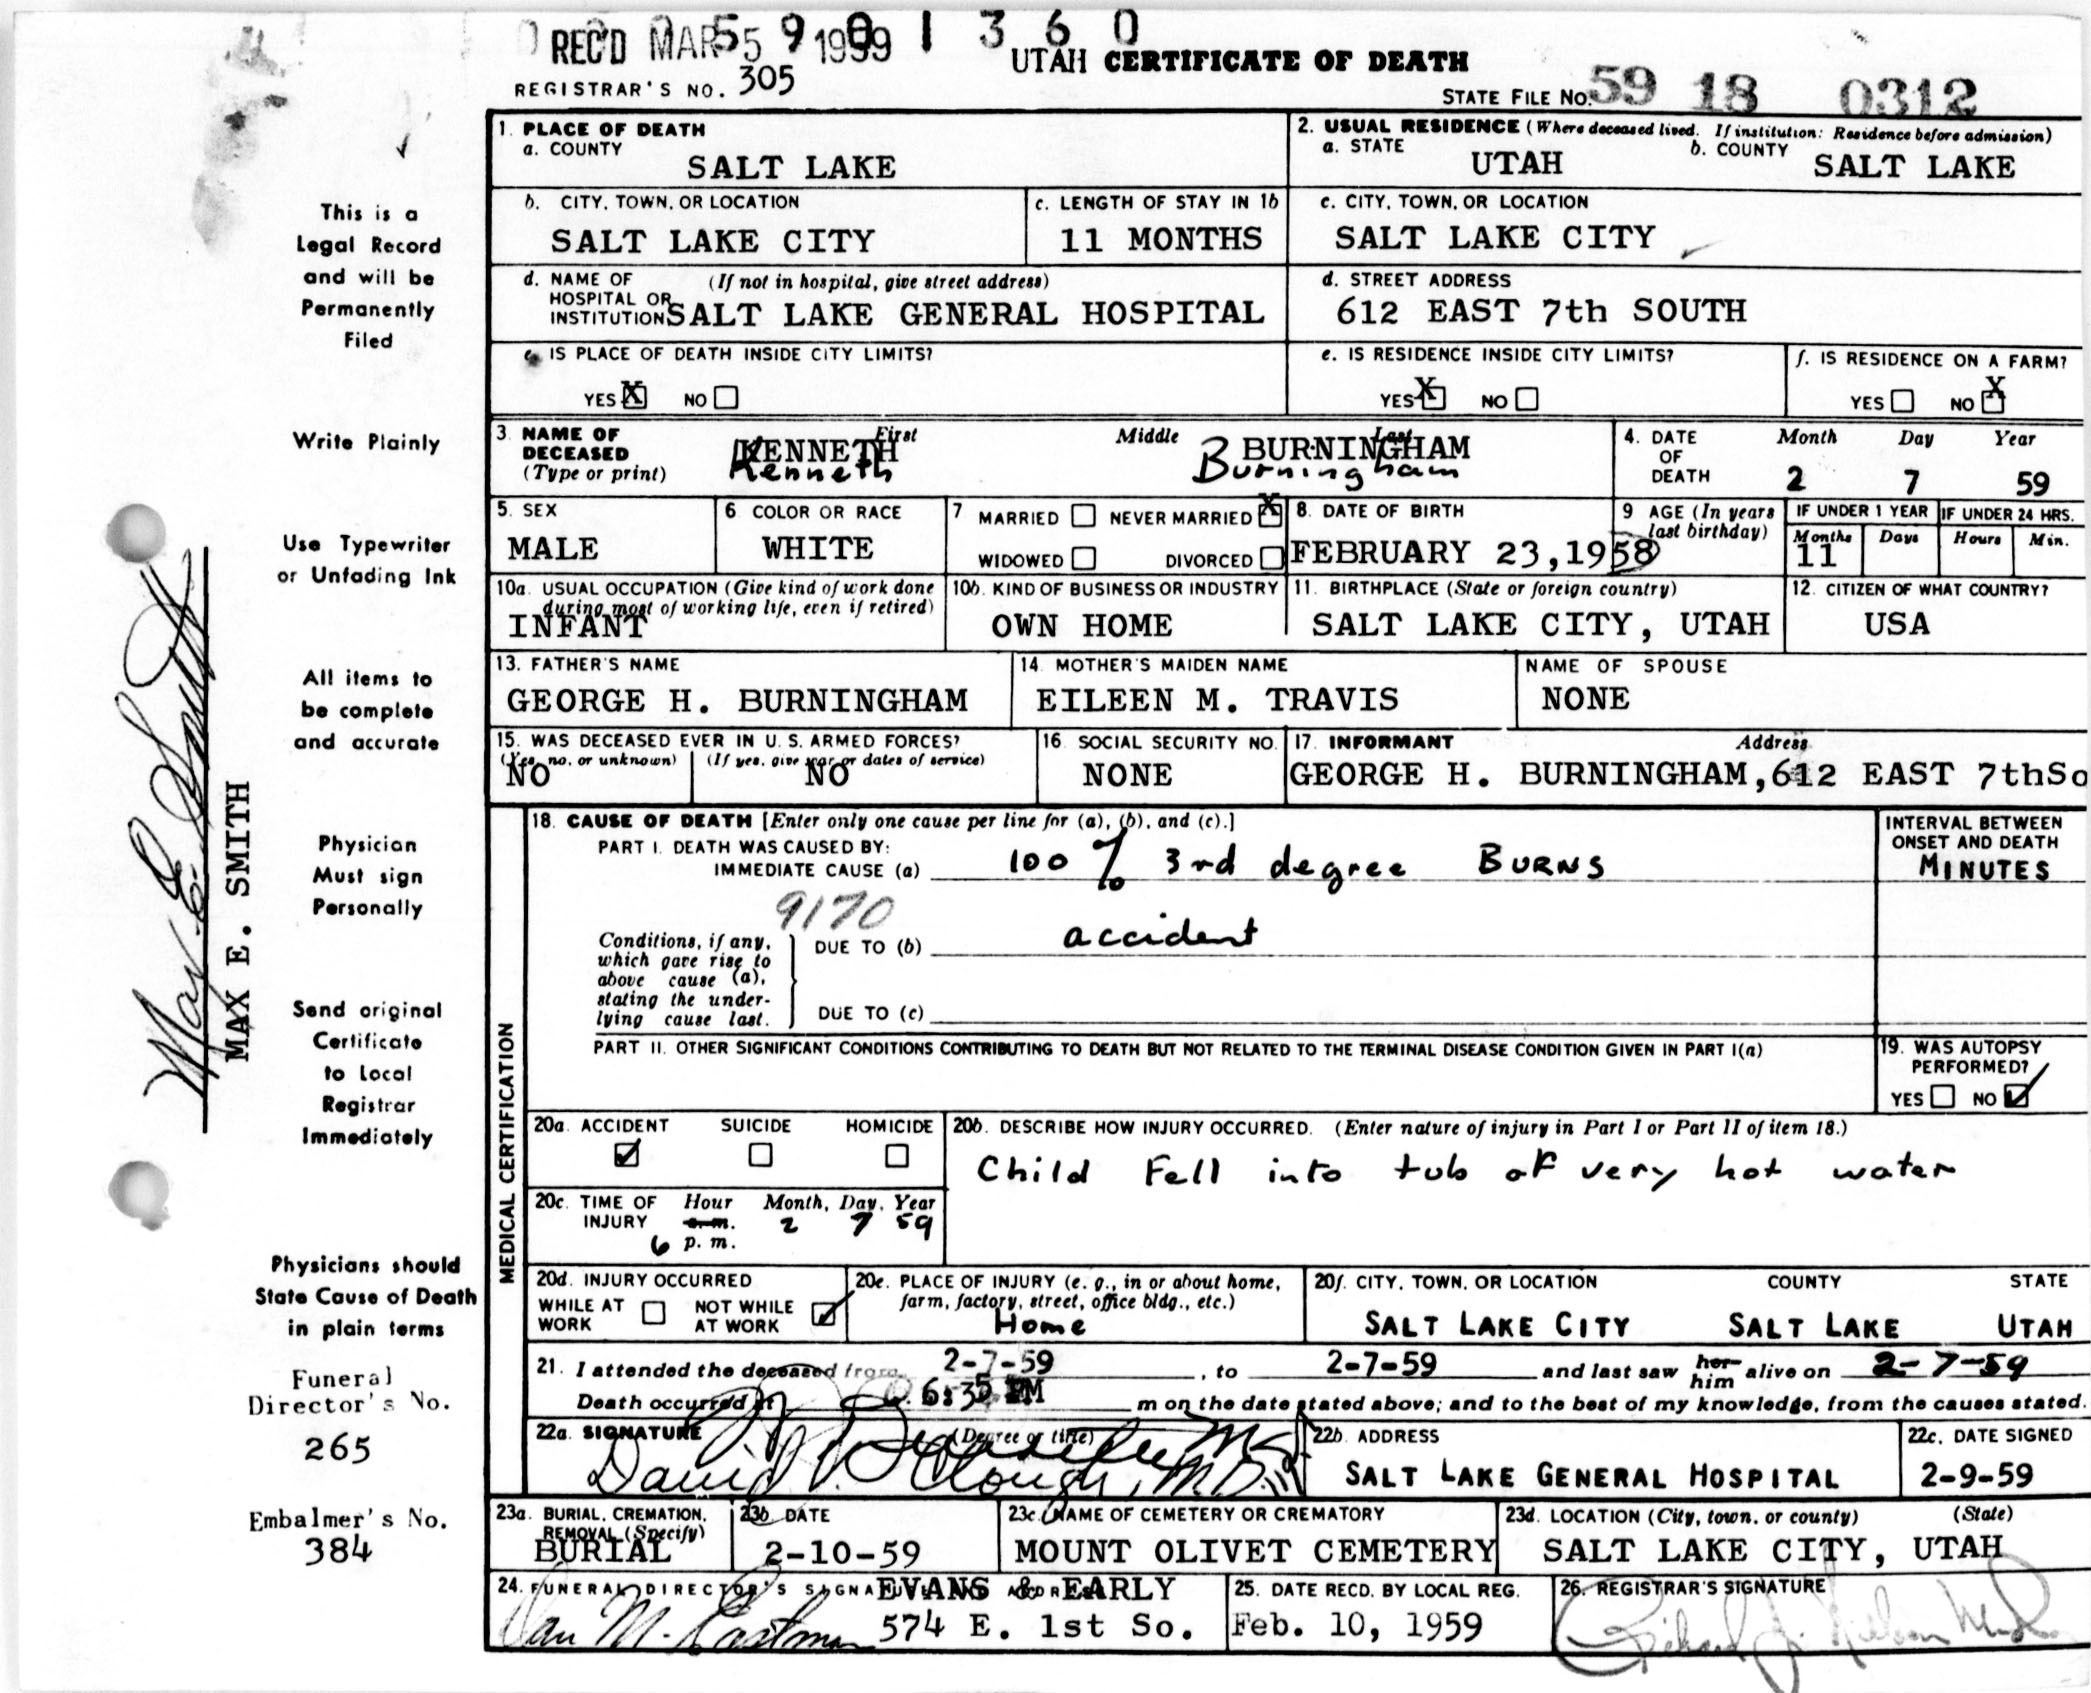 REC'D MAR 5 1959
59 01360
UTAH CERTIFICATE OF DEATH
REGISTRAR'S NO. 305
STATE FILE NO. 59 18 0312
1. PLACE OF DEATH
a. COUNTY
SALT LAKE
2. USUAL RESIDENCE (Where deceased lived. If institution: Residence before admission)
a. STATE UTAH b. COUNTY SALT LAKE
b. CITY, TOWN, OR LOCATION
SALT LAKE CITY
c. LENGTH OF STAY IN 1b
11 MONTHS
c. CITY, TOWN, OR LOCATION
SALT LAKE CITY
d. NAME OF HOSPITAL OR INSTITUTION (If not in hospital, give street address)
SALT LAKE GENERAL HOSPITAL
d. STREET ADDRESS
612 EAST 7th SOUTH
e. IS PLACE OF DEATH INSIDE CITY LIMITS?
YES X NO
e. IS RESIDENCE INSIDE CITY LIMITS?
YES X NO
f. IS RESIDENCE ON A FARM?
YES NO X
3. NAME OF DECEASED (Type or print)
First Middle Last
KENNETH B BURNINGHAM
Kenneth Burningham
4. DATE OF DEATH
Month Day Year
2 7 59
5. SEX
MALE
6 COLOR OR RACE
WHITE
7 MARRIED NEVER MARRIED X
WIDOWED DIVORCED
8. DATE OF BIRTH
FEBRUARY 23,1958
9 AGE (In years last birthday)
IF UNDER 1 YEAR IF UNDER 24 HRS.
Months Days Hours Min.
11
10a. USUAL OCCUPATION (Give kind of work done during most of working life, even if retired)
INFANT
10b. KIND OF BUSINESS OR INDUSTRY
OWN HOME
11. BIRTHPLACE (State or foreign country)
SALT LAKE CITY, UTAH
12. CITIZEN OF WHAT COUNTRY?
USA
13. FATHER'S NAME
GEORGE H. BURNINGHAM
14. MOTHER'S MAIDEN NAME
EILEEN M. TRAVIS
NAME OF SPOUSE
NONE
15. WAS DECEASED EVER IN U. S. ARMED FORCES?
(Yes, no, or unknown) (If yes, give war or dates of service)
NO NO
16. SOCIAL SECURITY NO.
NONE
17. INFORMANT Address
GEORGE H. BURNINGHAM,612 EAST 7thSo
18. CAUSE OF DEATH [Enter only one cause per line for (a), (b), and (c).]
PART I. DEATH WAS CAUSED BY:
IMMEDIATE CAUSE (a) 100 % 3rd degree BURNS
INTERVAL BETWEEN ONSET AND DEATH
MINUTES
9170
Conditions, if any, which gave rise to above cause (a), stating the underlying cause last.
DUE TO (b) accident
DUE TO (c)
PART II. OTHER SIGNIFICANT CONDITIONS CONTRIBUTING TO DEATH BUT NOT RELATED TO THE TERMINAL DISEASE CONDITION GIVEN IN PART I(a)
19. WAS AUTOPSY PERFORMED?
YES NO ✓
MEDICAL CERTIFICATION
20a. ACCIDENT SUICIDE HOMICIDE
✓
20b. DESCRIBE HOW INJURY OCCURRED. (Enter nature of injury in Part I or Part II of item 18.)
Child Fell into tub of very hot water
20c. TIME OF INJURY Hour Month, Day, Year
a. m. 2 7 59
6 p. m.
20d. INJURY OCCURRED
WHILE AT WORK NOT WHILE AT WORK ✓
20e. PLACE OF INJURY (e. g., in or about home, farm, factory, street, office bldg., etc.)
Home
20f. CITY, TOWN, OR LOCATION COUNTY STATE
SALT LAKE CITY SALT LAKE UTAH
21. I attended the deceased from 2-7-59, to 2-7-59 and last saw her him alive on 2-7-59
Death occurred at 6:35 PM m on the date stated above; and to the best of my knowledge, from the causes stated.
22a. SIGNATURE (Degree or title)
David Clough, M.D.
22b. ADDRESS
SALT LAKE GENERAL HOSPITAL
22c. DATE SIGNED
2-9-59
23a. BURIAL, CREMATION, REMOVAL (Specify)
BURIAL
23b. DATE
2-10-59
23c. NAME OF CEMETERY OR CREMATORY
MOUNT OLIVET CEMETERY
23d. LOCATION (City, town, or county) (State)
SALT LAKE CITY, UTAH
24. FUNERAL DIRECTOR'S SIGNATURE AND ADDRESS
EVANS & EARLY
Dan M. Eastman 574 E. 1st So.
25. DATE RECD. BY LOCAL REG.
Feb. 10, 1959
26. REGISTRAR'S SIGNATURE
Richard J. Nelson
This is a
Legal Record
and will be
Permanently
Filed
Write Plainly
Use Typewriter
or Unfading Ink
All items to
be complete
and accurate
Physician
Must sign
Personally
Send original
Certificate
to Local
Registrar
Immediately
Physicians should
State Cause of Death
in plain terms
Funeral
Director's No.
265
Embalmer's No.
384
Max E. Smith
MAX E. SMITH